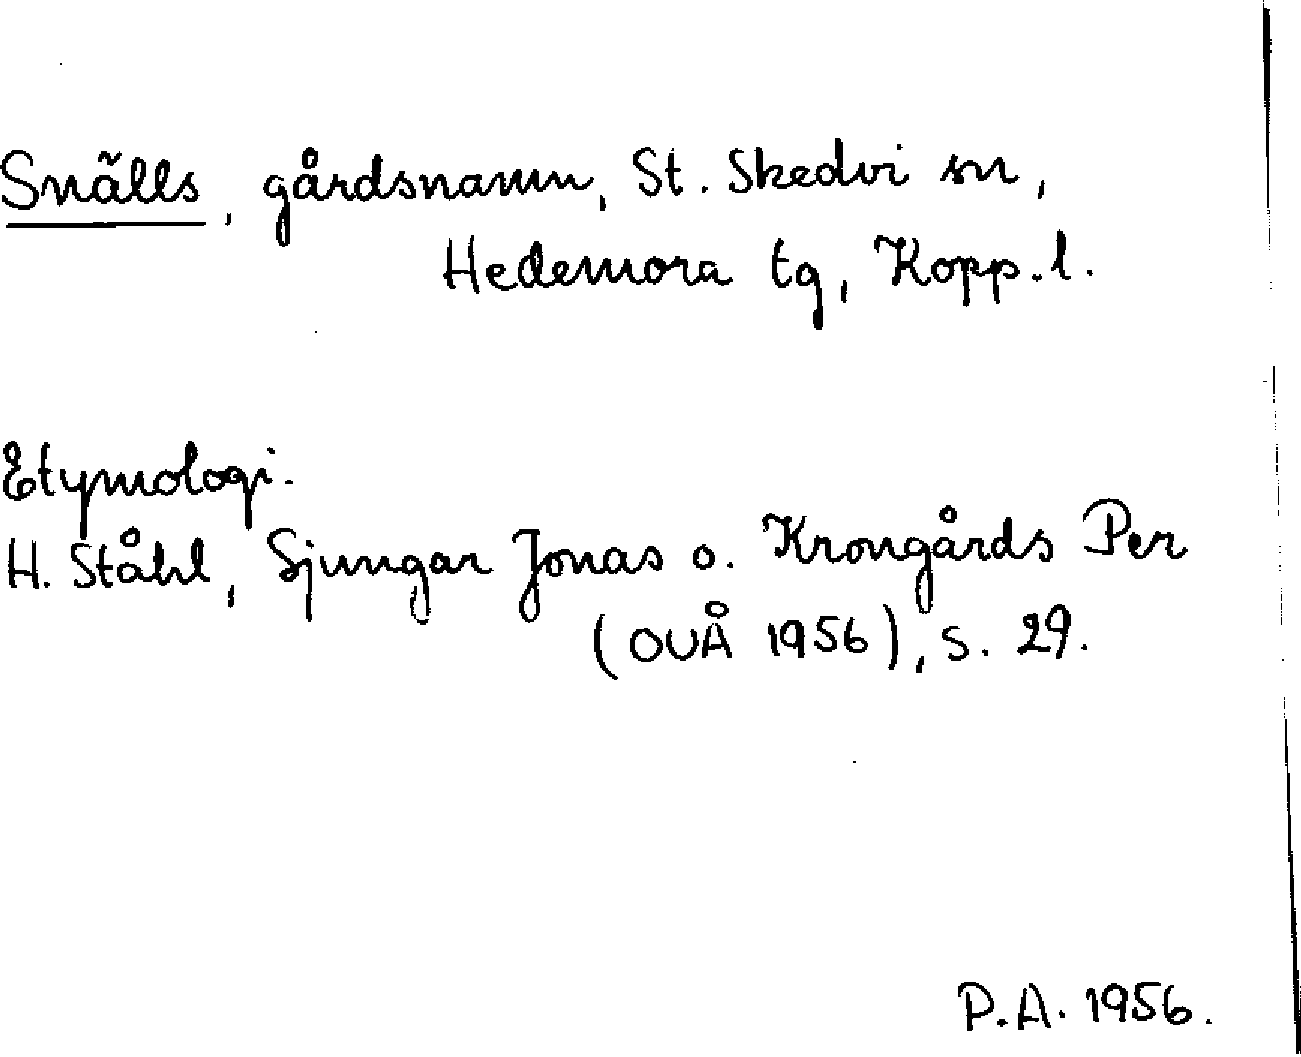 Snälls, gårdsnamn, St. Skedvi sn,
Hedemora tg, Kopp. l.
Etymologi.
H. Ståhl, Sjungar Jonas o. Krongårds Per
(OUÅ 1956), s. 29.
P.A. 1956.